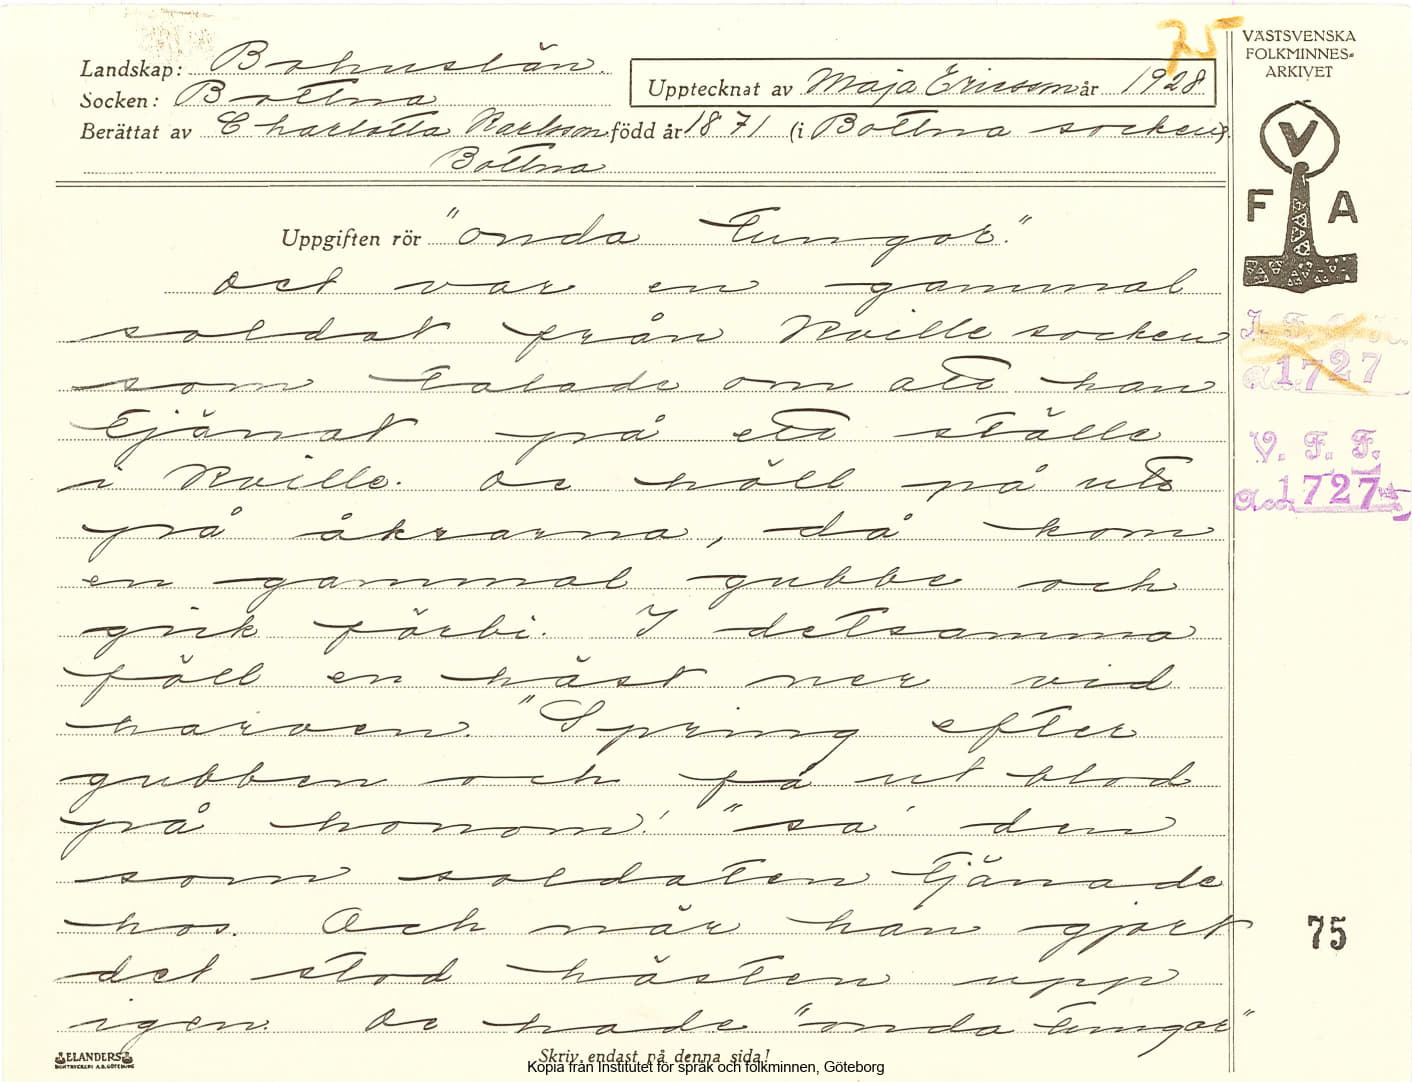 75
VÄSTSVENSKA
FOLKMINNES-
ARKIVET
Landskap: Bohuslän.
Socken: Bottna
Upptecknat av Maja Ericsson år 1928
Berättat av Charlotta Karlsson född år 1871 (i Bottna socken).
Bottna
V
F A
Uppgiften rör "onda tungor."
Det var en gammal
soldat från Kville socken
som talade om att han
tjänat på ett ställe
i Kville. De höll på ute
på åkrarna, då kom
en gammal gubbe och
gick förbi. I detsamma
föll en häst ner vid
harven. "Spring efter
gubben och få ut blod
på honom!" sa' den
som soldaten tjänade
hos. Och när han gjort
det stod hästen upp
igen. De hade "onda tungor"
1727
V. F. F.
Acc. 1727
75
ELANDERS
BOKTRYCKERI A.B. GÖTEBORG
Skriv endast på denna sida!
Kopia från Institutet för språk och folkminnen, Göteborg